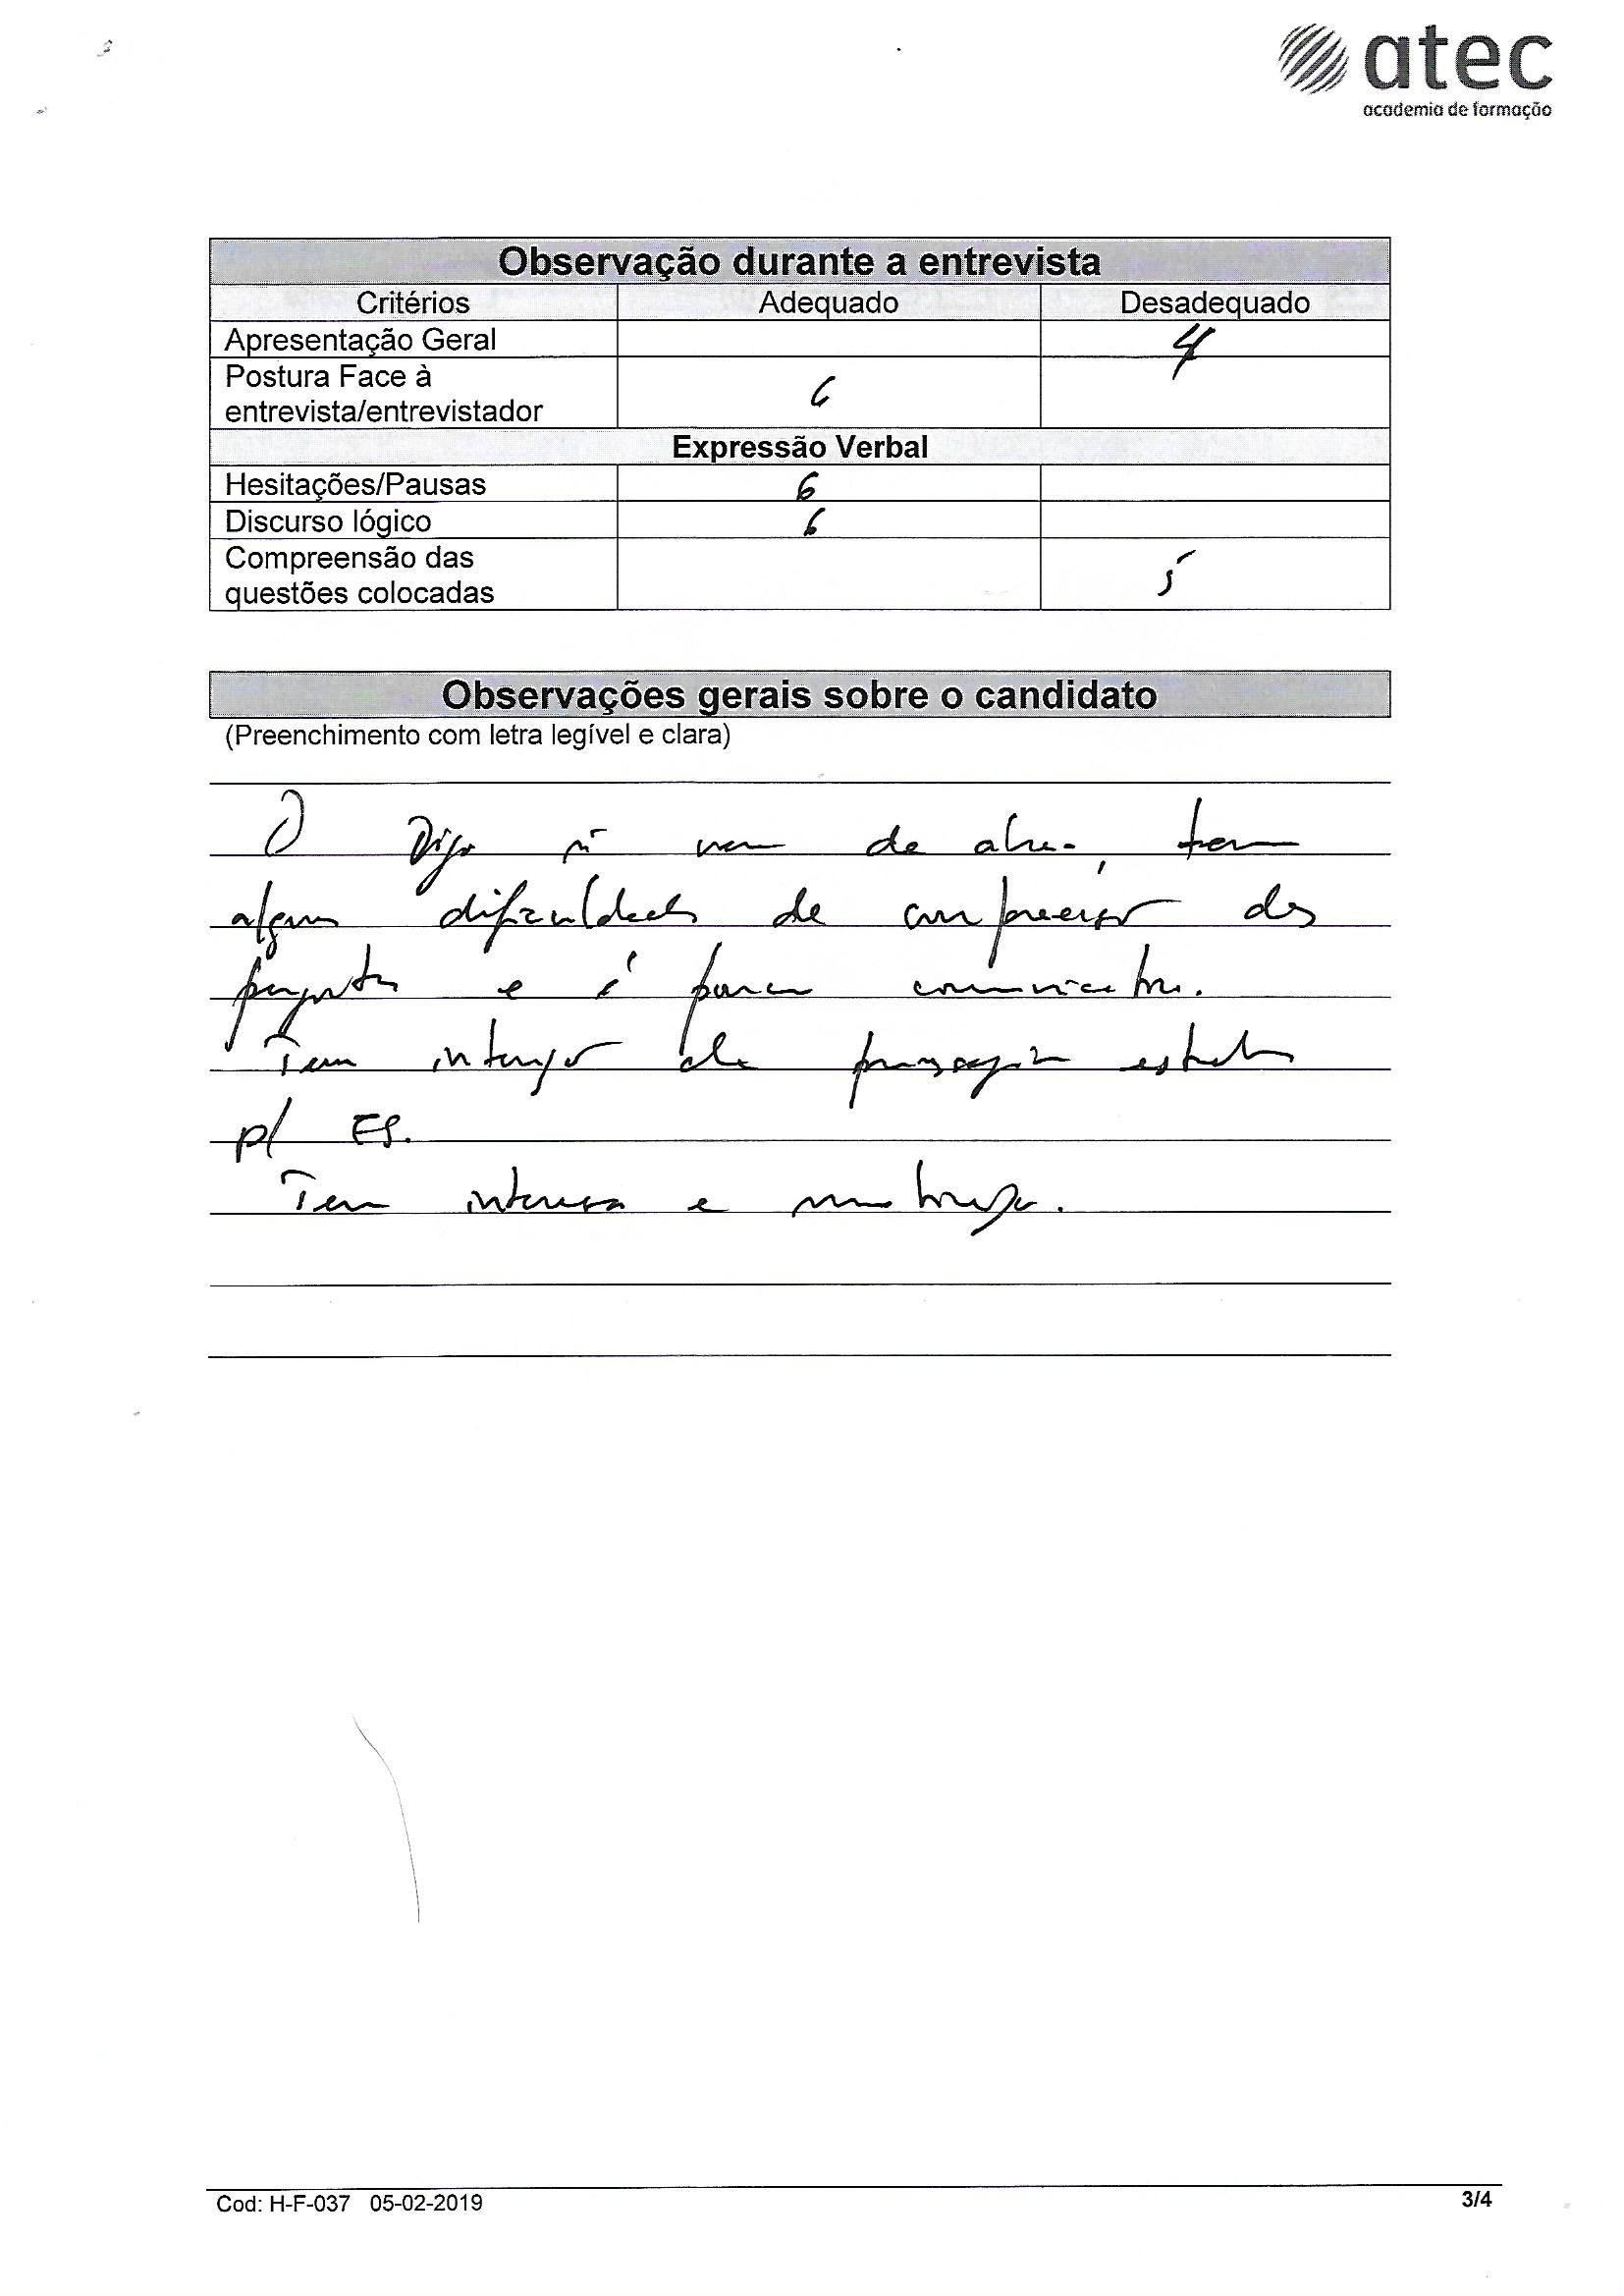 atec
academia de formação
Observação durante a entrevista
Critérios Adequado Desadequado
Apresentação Geral 4
Postura Face à
entrevista/entrevistador 6
Expressão Verbal
Hesitações/Pausas 6
Discurso lógico 6
Compreensão das
questões colocadas 5
Observações gerais sobre o candidato
(Preenchimento com letra legível e clara)
O ñ vem de, tem
algumas dificuldades de compreensão das
perguntas e é pouco comunicativo.
Tem intenção de prosseguir estudos
p/ ES.
Tem interesse e motivação.
Cod: H-F-037 05-02-2019
3/4